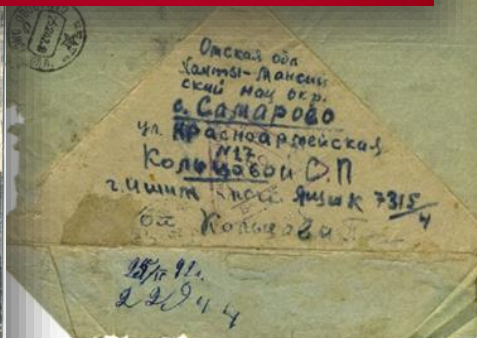 Омская обл
Ханты-Мансий
ский нац окр.
с. Самарово
ул. Красноармейская
№17
Кольцовой О П
г. Ишим поч Ящик 7315/4
от Кольцова
22944